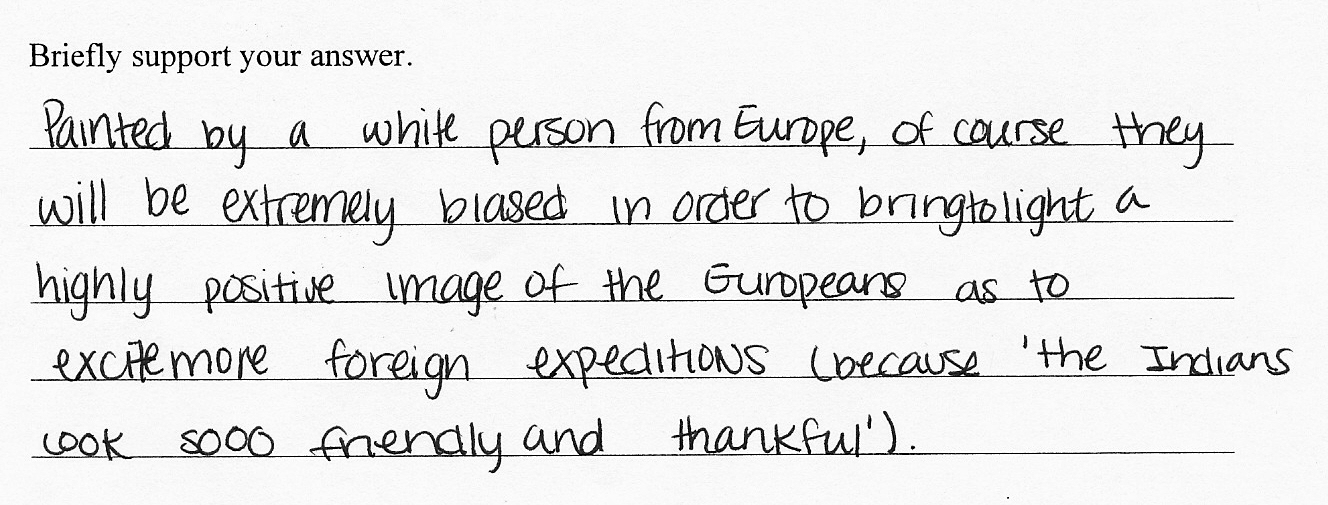 Briefly support your answer.
Painted by a white person from Europe, of course they
will be extremely biased in order to bring to light a
highly positive image of the Europeans as to
excite more foreign expeditions (because 'the Indians
look sooo friendly and thankful').